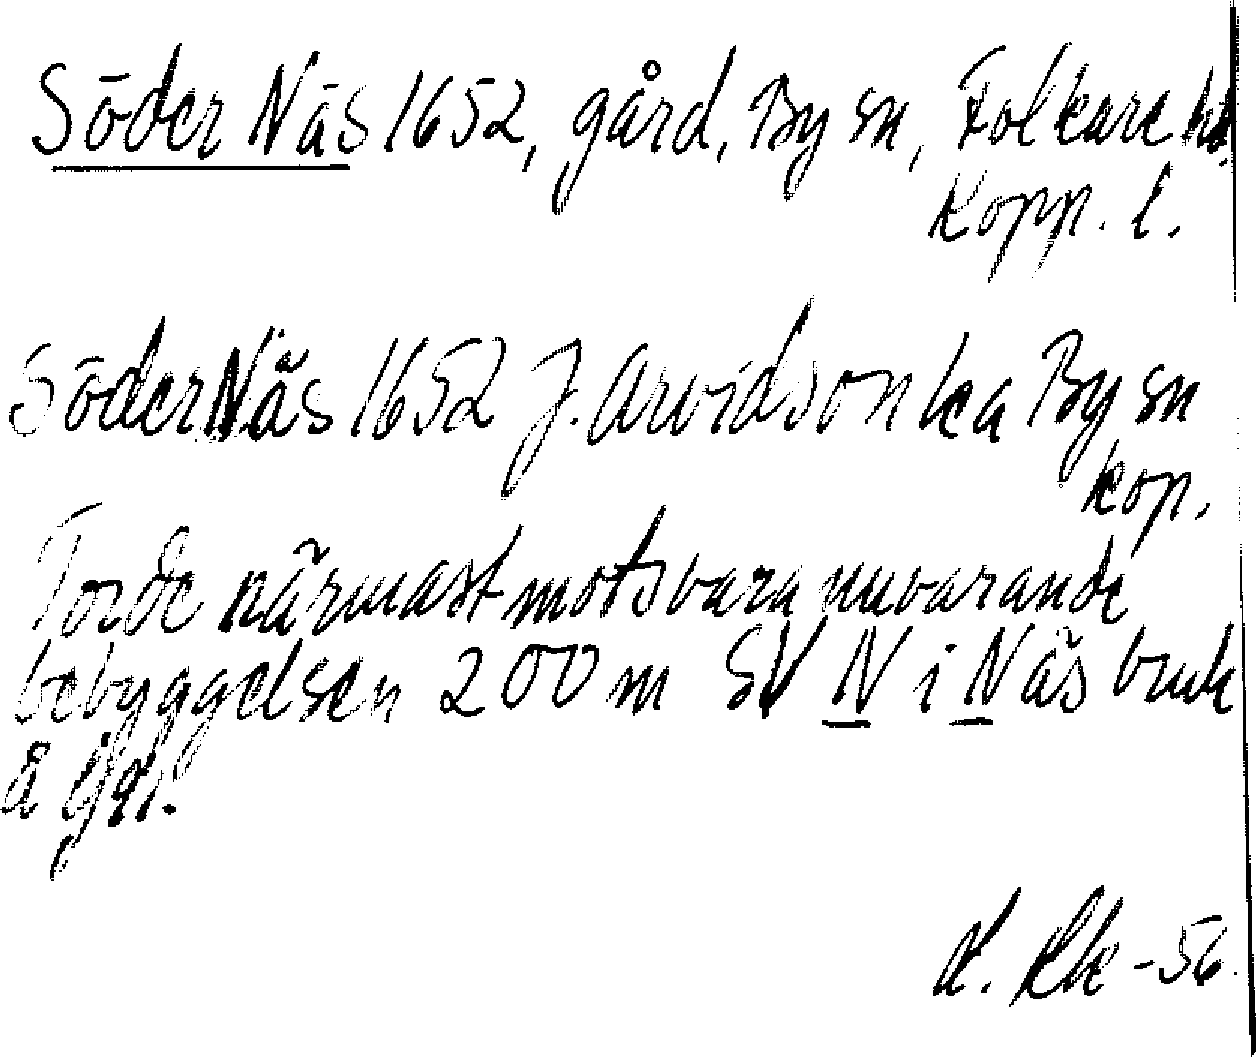 Söder Näs 1652, gård, By sn, Folkare hd.
Kopp. l.
Söder Näs 1652 J. Arvidson ka By sn
kop.
Torde närmast motsvara nuvarande
bebyggelsen 200 m SV N i Näs bruk
å
-56